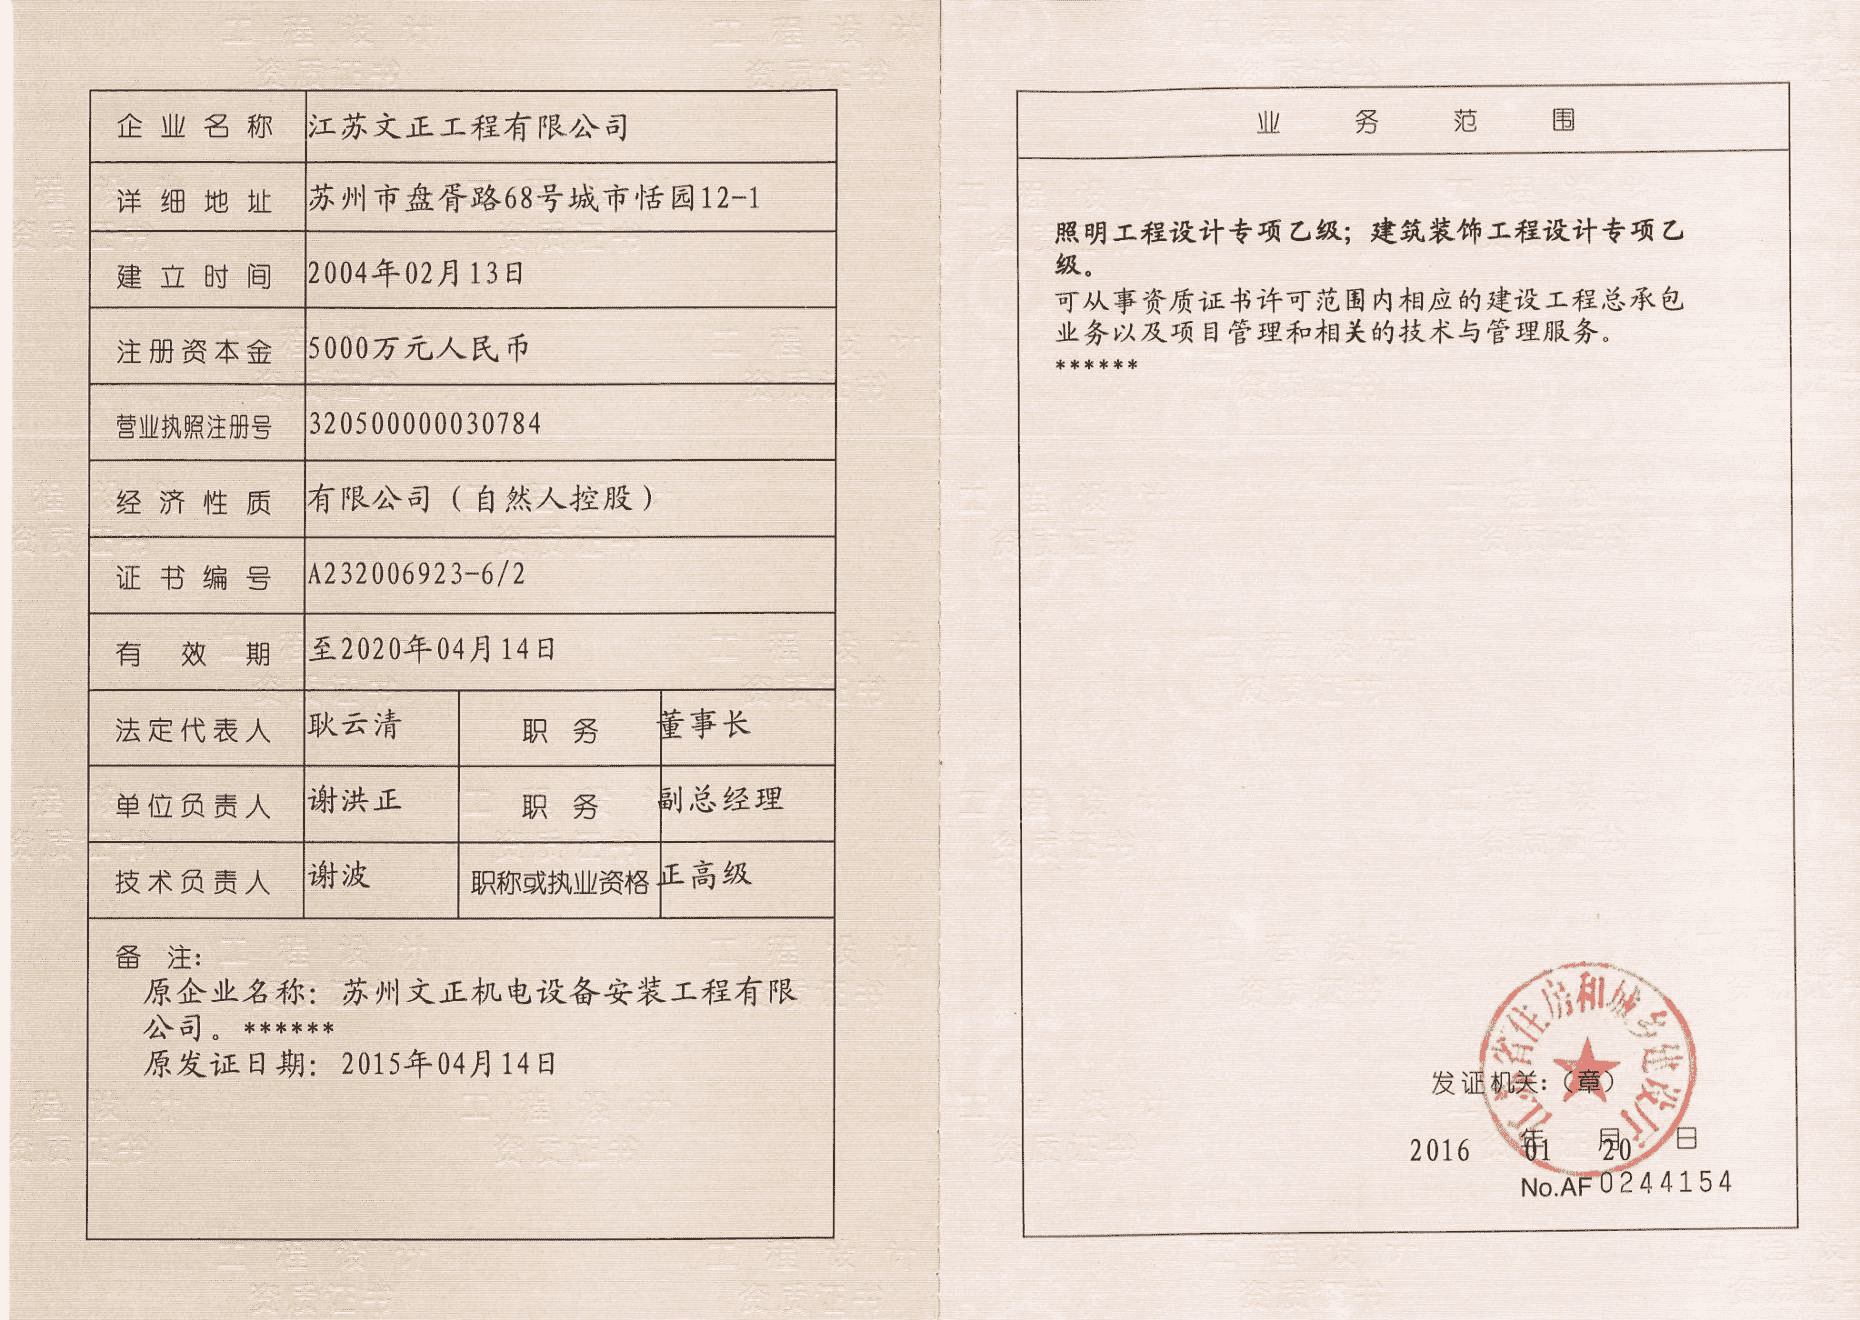 企业名称 江苏文正工程有限公司
详细地址 苏州市盘胥路68号城市恬园12-1
建立时间 2004年02月13日
注册资本金 5000万元人民币
营业执照注册号 320500000030784
经济性质 有限公司（自然人控股）
证书编号 A232006923-6/2
有效期 至2020年04月14日
法定代表人 耿云清 职务 董事长
单位负责人 谢洪正 职务 副总经理
技术负责人 谢波 职称或执业资格 正高级
备注:
原企业名称：苏州文正机电设备安装工程有限
公司。******
原发证日期：2015年04月14日
业务范围
照明工程设计专项乙级；建筑装饰工程设计专项乙
级。
可从事资质证书许可范围内相应的建设工程总承包
业务以及项目管理和相关的技术与管理服务。
******
江苏省住房和城乡建设厅
发证机关:（章）
2016年01月20日
No.AF 0244154
工程设计
资质证书